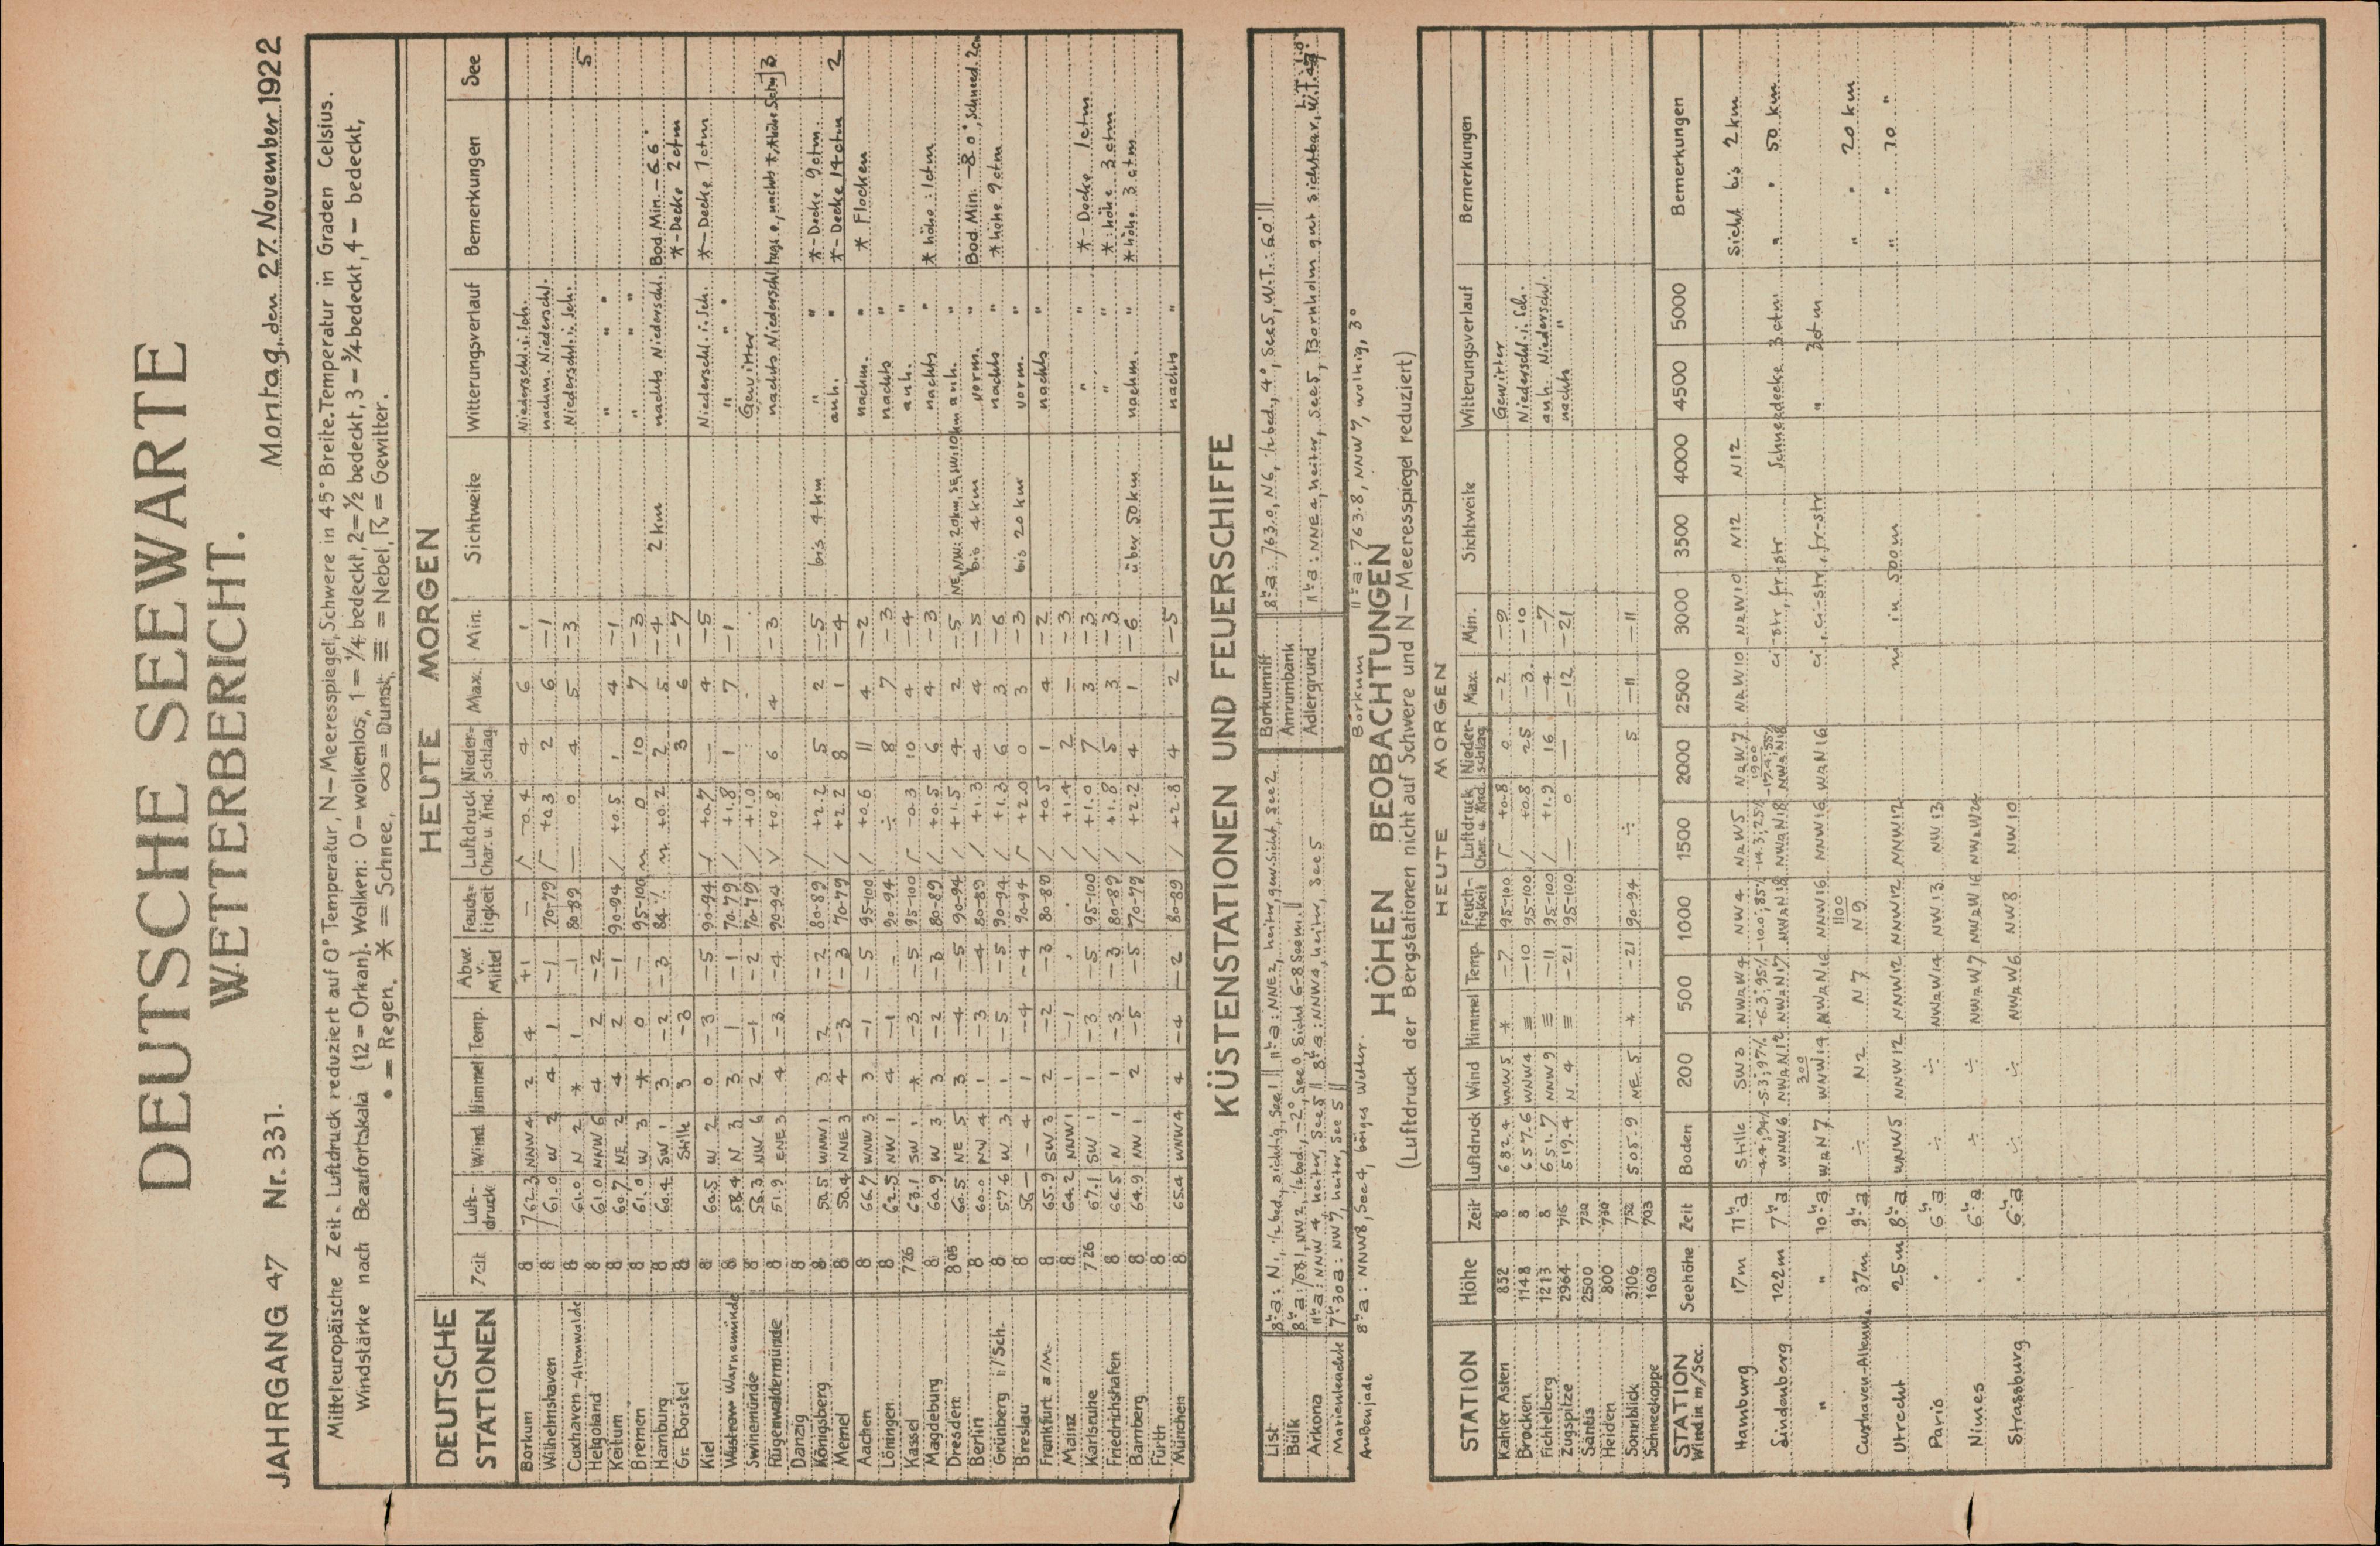 DEUTSCHE SEEWARTE
WETTERBERICHT.
JAHRGANG 47 Nr. 331. Montag, den 27. November 1922
Mitteleuropäische Zeit. Luftdruck reduziert auf 0° Temperatur, N–Meeresspiegel, Schwere in 45° Breite. Temperatur in Graden Celsius.
Windstärke nach Beaufortskala (12 = Orkan). Wolken: 0 – wolkenlos, 1 = 1/4 bedeckt, 2 – 1/2 bedeckt, 3 – 3/4 bedeckt, 4 – bedeckt,
• = Regen. * = Schnee, ∞ = Dunst, ≡ = Nebel, = Gewitter.
DEUTSCHE STATIONEN HEUTE MORGEN
Zeit Luftdruck Wind Himmel Temp. Abw. v. Mittel Feuchtigkeit Luftdruck Char. u. Änd. Niederschlag Max. Min. Sichtweite Witterungsverlauf Bemerkungen See
Borkum 8 762.3 NNW 4 2 4 +1 — −0.4 4 6 1 Niederschl. i. Sch.
Wilhelmshaven 8 61.0 W 2 4 1 −1 70-79 +0.3 2 6 −1 nachm. Niederschl.
Cuxhaven-Altenwalde 8 61.0 N 2 * 1 −1 80-89 0 4 5 −3 Niederschl. i. Sch. 5
Helgoland 8 61.0 NNW 6 4 2 −2
Keitum 8 60.7 NE 2 4 2 −1 90-94 / +0.5 1 4 −1 " " "
Bremen 8 61.0 W 3 * 0 — 95-100 0 10 7 −3 " " "
Hamburg 8 60.4 SW 1 3 −2 −3 84 % +0.2 2 5 −4 2 km nachts Niederschl. Bod. Min. −6.6°
Gr. Borstel 8 Stille 3 −3 3 6 −7 *-Decke 2 ctm
Kiel 8 60.5 W 2 0 −3 −5 90-94 +0.7 — 4 −5 Niederschl. i. Sch. *-Decke 1 ctm
Warnemünde 8 58.4 N 3 3 1 −1 70-79 / +1.8 1 7 −1 " " "
Swinemünde 8 58.3 NW 6 2 −1 −2 70-79 / +1.0 Gewitter
Rügenwaldermünde 8 51.9 ENE 3 4 −3 −4 90-94 +0.8 6 4 −3 nachts Niederschl. 3
Danzig 8
Königsberg 8 50.5 WNW 1 3 2 −2 80-89 / +2.2 5 2 −5 bis 4 km " " *-Decke 9 ctm
Memel 8 50.4 NNE 3 4 −3 −3 70-79 / +2.2 8 1 −4 anh. " *-Decke 14 ctm 2
Aachen 8 66.7 WNW 3 3 −1 −5 95-100 / +0.6 11 4 −2 nachm. " * Flocken
Löningen 8 62.5 NW 1 4 −1 90-94 ÷ 8 7 −3 nachts "
Kassel 7 26 63.1 SW 1 * −3 −5 95-100 −0.3 10 4 −4 anh. "
Magdeburg 8 60.9 W 3 3 −2 −3 80-89 / +0.5 6 4 −3 nachts " * höhe: 1 ctm
Dresden 8 05 60.5 NE 5 3 −4 −5 90-94 / +1.5 4 2 −5 NE, NW: 20 km, SE, SW: 10 km anh. "
Berlin 8 60.0 NW 4 1 −3 −4 80-89 / +1.3 4 4 −5 bis 4 km vorm. " Bod. Min. −8.0°, Schneed. 2 cm
Grünberg i/Sch. 8 57.6 W 3 1 −5 −5 90-94 / +1.3 6 3 −6 nachts " * höhe 9 ctm
Breslau 8 56 — — 4 1 −4 −4 90-94 +2.0 0 3 −3 bis 20 km vorm. "
Frankfurt a/M. 8 65.9 SW 3 2 −2 −3 80-89 / +0.5 1 4 −2 nachts "
Mainz 8 64.2 NNW 1 1 −1 / +1.4 2 — −3
Karlsruhe 7 26 67.1 SW 1 1 −3 −5 95-100 / +1.0 7 3 −3 " " *-Decke 1 ctm
Friedrichshafen 8 66.5 N 1 1 −3 −3 80-89 / +1.8 5 3 −3 " " * höhe 3 ctm
Bamberg 8 64.9 NW 1 2 −5 −5 70-79 / +2.2 4 1 −6 über 50 km nachm. " * höhe 3 ctm
Fürth 8
München 8 65.4 WNW 4 4 −4 −2 80-89 / +2.8 4 2 −5 nachts "
KÜSTENSTATIONEN UND FEUERSCHIFFE
List 8ʰa: N1, 1/2 bed., sichtig, See 1 || 11ʰa: NNE 2, heiter, gew. Sicht, See 2
Bülk 8ʰa: 758.1, NW 2, 1/2 bed., −2°, See 0, Sicht 6-8 Seem. ||
Arkona 11ʰa: NNW 4, heiter, See 5 || 8ʰa: NNW 4, heiter, See 5
Marienleuchte 7ʰ30a: NW 7, heiter, See 5 ||
Borkumriff 8ʰa: 763.0, N6, 1/2 bed., 4°, See 5, W.T.: 6.0° ||
Amrumbank
Adlergrund 11ʰa: NNE 4, heiter, See 5, Bornholm gut sichtbar, W.T. 4.7°
Außenjade 8ʰa: NNW 8, See 4, böiges Wetter.
Borkum 11ʰa: 763.8, NNW 7, wolkig, 3°
HÖHEN BEOBACHTUNGEN
(Luftdruck der Bergstationen nicht auf Schwere und N–Meeresspiegel reduziert)
HEUTE MORGEN
STATION Höhe Zeit Luftdruck Wind Himmel Temp. Feuchtigkeit Luftdruck Char. u. Änd. Niederschlag Max. Min. Sichtweite Witterungsverlauf Bemerkungen
Kahler Asten 852 8 682.4 WNW 5 * −7 95-100 +0.8 0 −2 −9 Gewitter
Brocken 1148 8 657.6 WNW 4 ≡ −10 95-100 / +0.8 25 −3 −10 Niederschl. i. Sch.
Fichtelberg 1213 8 651.7 NNW 9 ≡ −11 95-100 / +1.9 16 −4 −7 anh. Niederschl.
Zugspitze 2964 7 16 519.4 N 4 ≡ −21 95-100 — 0 — −12 −21 nachts "
Säntis 2500 7 30
Heiden 800 7 30
Sonnblick 3106 7 52 505.9 NE 5 * −21 90-94 ÷ 5 −11 −11
Schneekoppe 1603 7 03
STATION Wind in m/Sec. Seehöhe Zeit Boden 200 500 1000 1500 2000 2500 3000 3500 4000 4500 5000 Bemerkungen
Hamburg 17m 11ʰa Stille SW 3 NWzW 4 NW 4 NzW 5 NzW 7 NzW 10 NzW 10 N 12 N 12 Sicht bis 2 km
−4.4; 94% −5.3; 97% −6.3; 95% −10.0; 85% −14.3; 25%
Lindenberg 122m 7ʰa WNW 6 NWzN 12 NWzN 17 NWzN 18 NWzN 18 NWzN 18 ci-str, fr-str Schneedecke 3 ctm " " 50 km
" " 10ʰa WzN 7 300 WNW 14 NWzN 16 NNW 16 NNW 16 WzN 16 ci, ci-str, fr-str " 3 ctm
Cuxhaven-Altenw. 37m 9ʰa ÷ N 2 N 7 1100 N 9 " " 20 km
Utrecht 25m 8ʰa WNW 5 NNW 12 NNW 12 NNW 12 NNW 12 ni in 500 m " " 10 "
Paris . 6ʰa ÷ ÷ NWzW 14 NW 13 NW 13
Nimes . 6ʰa ÷ ÷ NWzW 7 NWzW 16 NWzW 24
Strassburg . 6ʰa ÷ ÷ NWzW 6 NW 8 NW 10